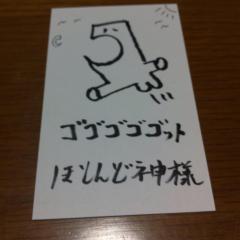 ゴゴゴゴゴット
ほとんど神様